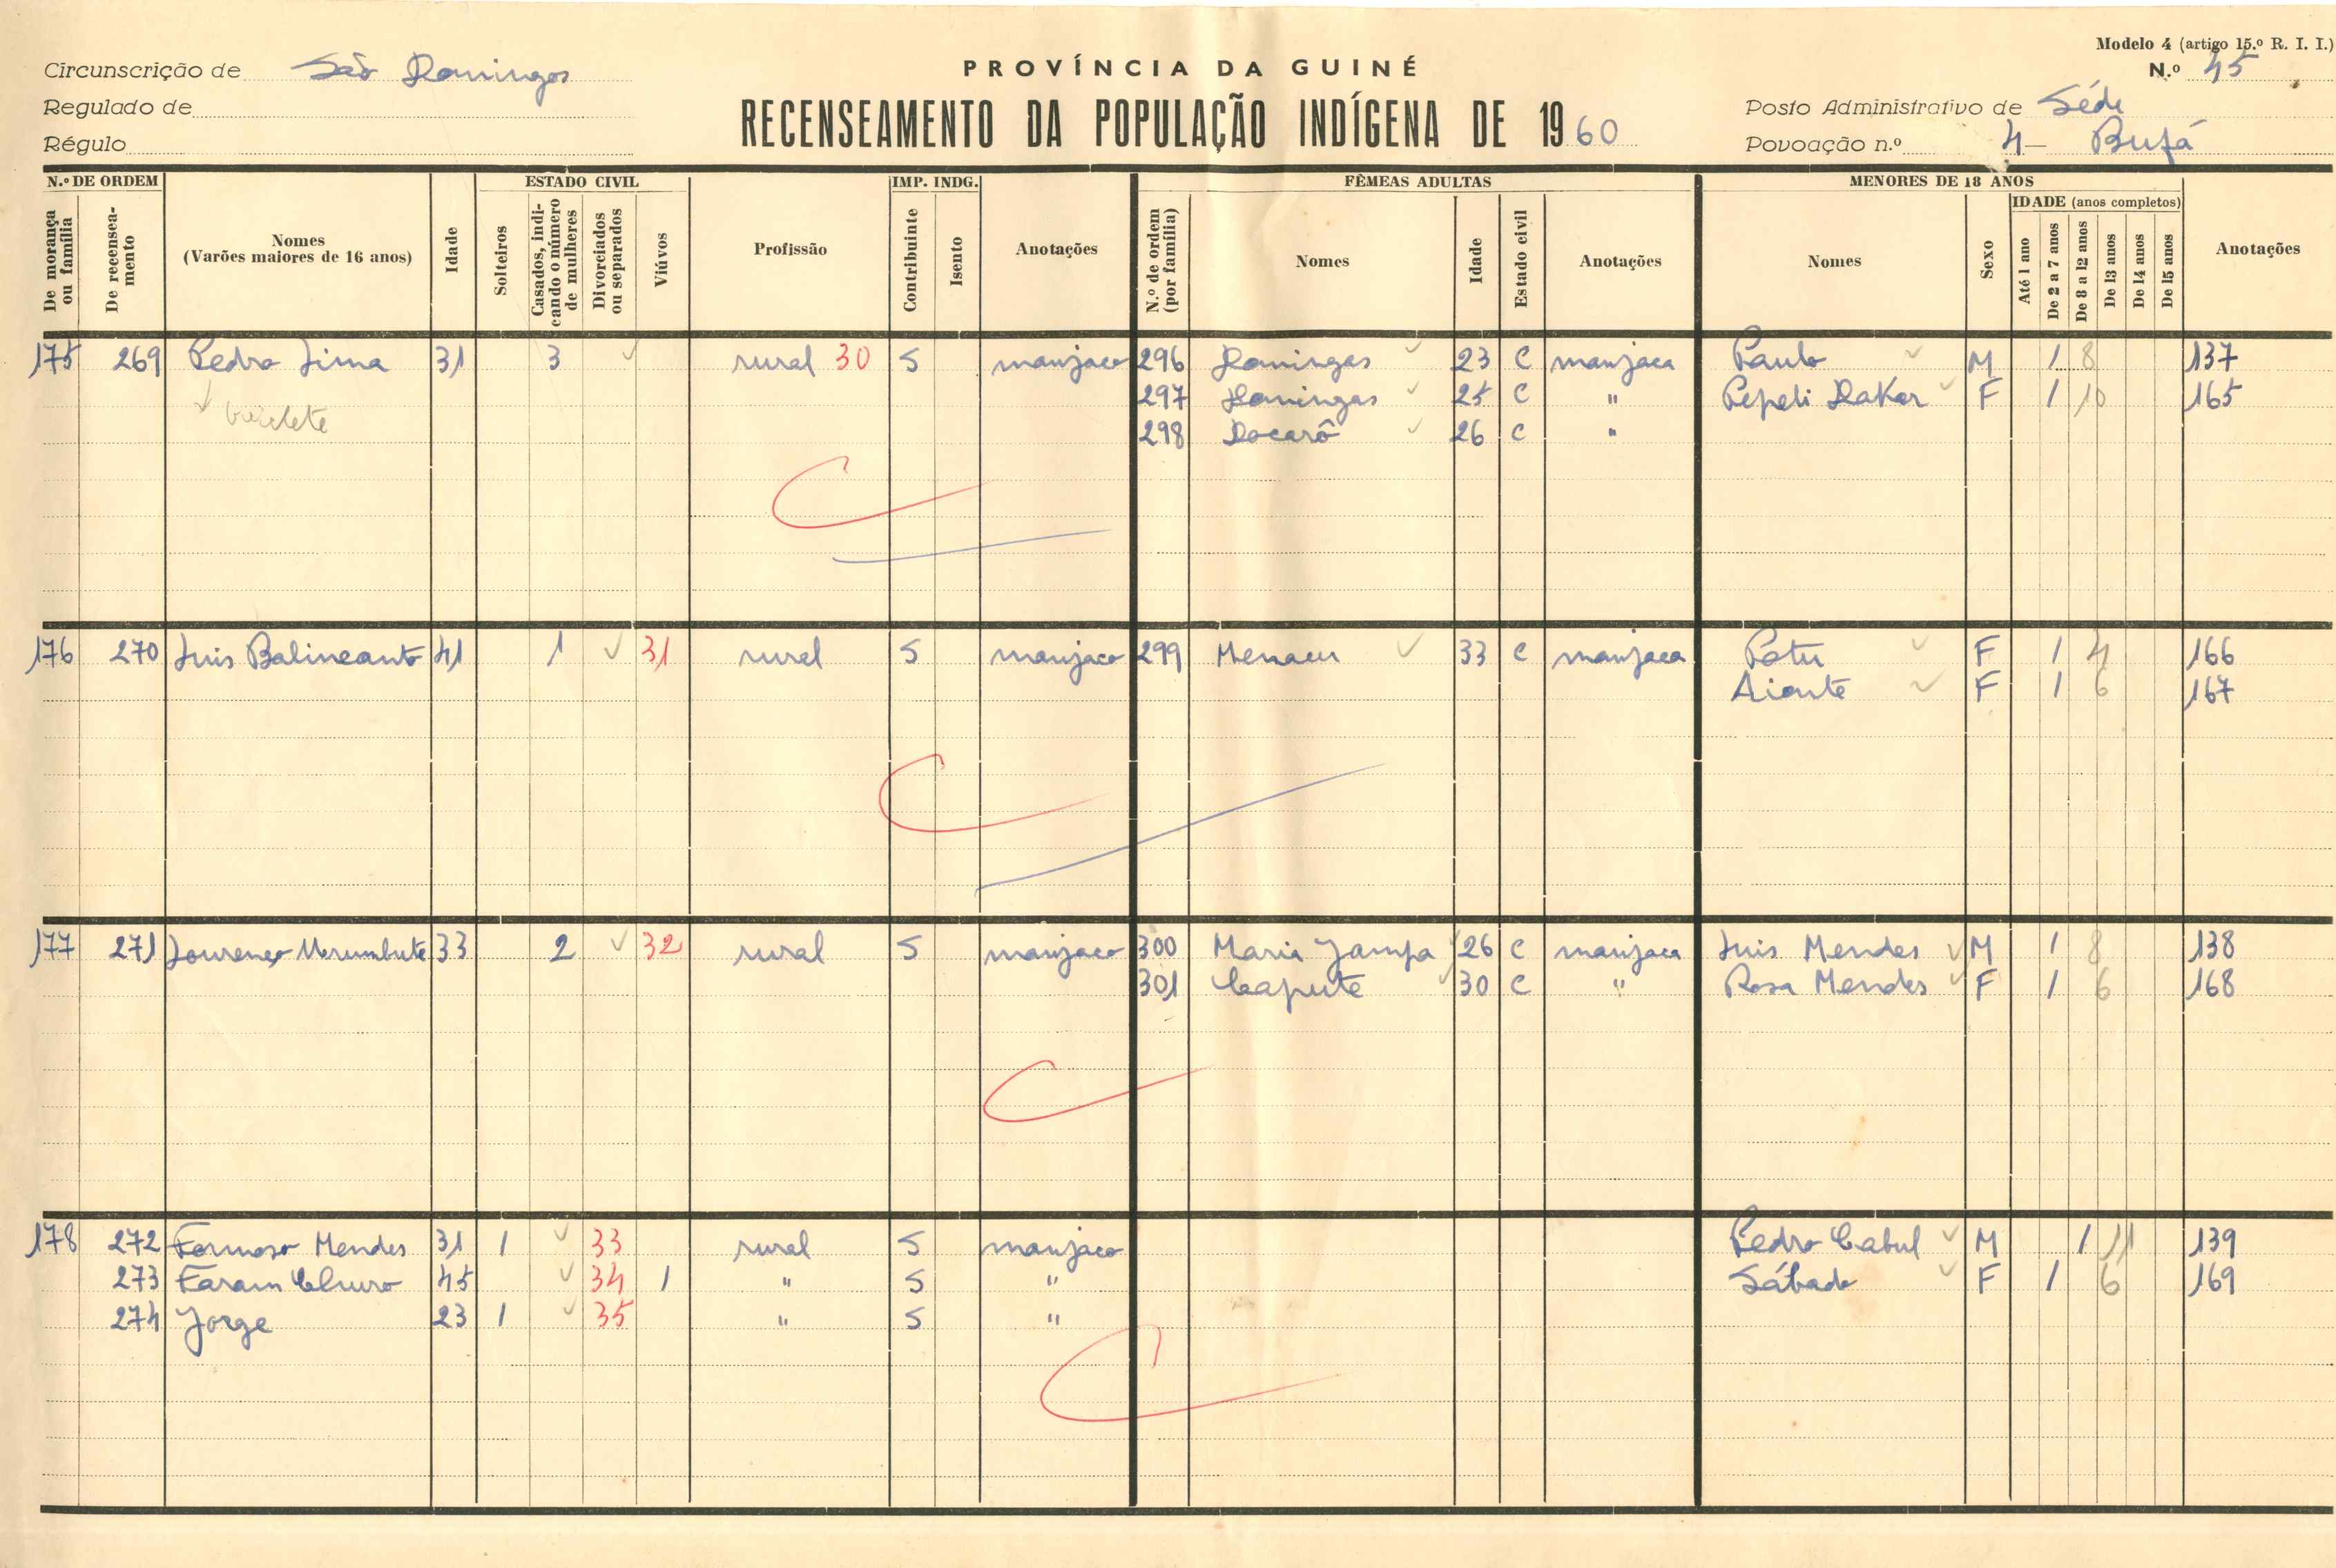 Modelo 4 (artigo 15.º R. I. I.)
Circunscrição de São Domingos
PROVÍNCIA DA GUINÉ
N.º 45
Regulado de
RECENSEAMENTO DA POPULAÇÃO INDÍGENA DE 1960
Posto Administrativo de Séde
Régulo
Povoação n.º 4 — Bufá
N.º DE ORDEM ESTADO CIVIL IMP. INDG. FÊMEAS ADULTAS MENORES DE 18 ANOS
IDADE (anos completos)
De morança ou família De recenseamento Nomes (Varões maiores de 16 anos) Idade Solteiros Casados, indicando o número de mulheres Divorciados ou separados Viúvos Profissão Contribuinte Isento Anotações N.º de ordem (por família) Nomes Idade Estado civil Anotações Nomes Sexo Até 1 ano De 2 a 7 anos De 8 a 12 anos De 13 anos De 14 anos De 15 anos Anotações
175 269 Pedro Lima 31 3 rural 30 S manjaco 296 Domingas 23 C manjaca Paulo M 1 8 137
297 Domingas 25 C " Pepeli Dakar F 1 10 165
298 Docarô 26 C "
176 270 Luis Balineanto 41 1 31 rural S manjaco 299 33 C manjaca Patu F 1 4 166
Aionte F 1 6 167
177 271 Lourenço 33 2 32 rural S manjaco 300 Maria Jampa 26 C manjaca Luis Mendes M 1 8 138
301 Capute 30 C " Rosa Mendes F 1 6 168
178 272 Formoso Mendes 31 1 33 rural S manjaco Pedro Cabul M 1 11 139
273 Faram Churo 45 34 1 " S " Sábado F 1 6 169
274 Jorge 23 1 35 " S "